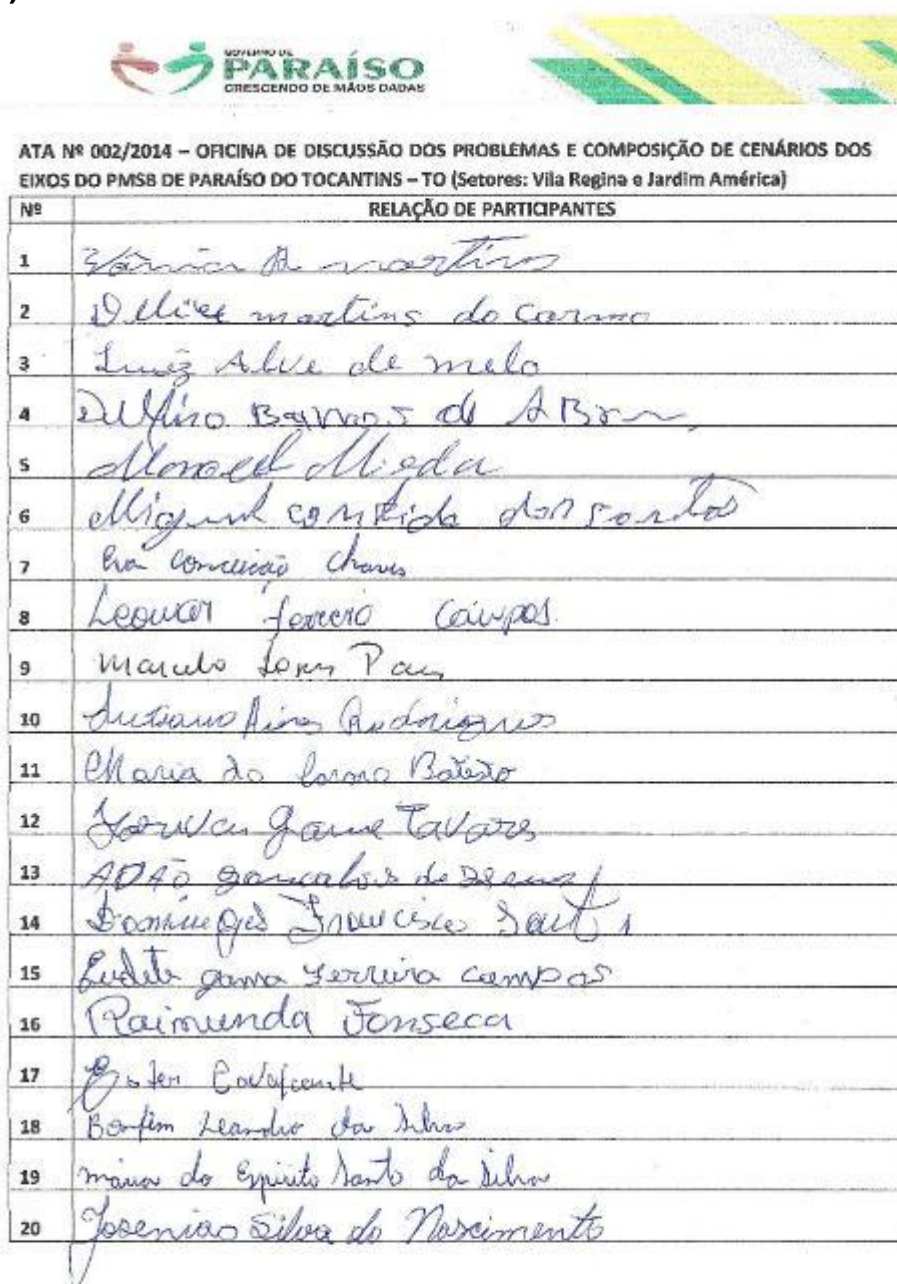 GOVERNO DE
PARAÍSO
CRESCENDO DE MÃOS DADAS
ATA Nº 002/2014 – OFICINA DE DISCUSSÃO DOS PROBLEMAS E COMPOSIÇÃO DE CENÁRIOS DOS
EIXOS DO PMSB DE PARAÍSO DO TOCANTINS – TO (Setores: Vila Regina e Jardim América)
Nº RELAÇÃO DE PARTICIPANTES
1 Vânia martins
2 martins do Carmo
3 Luiz Alve de melo
4 Barros de
5
6 Miguel dos santos
7 Eva conceição Chaves
8 Campos
9
10 Aires Rodrigues
11 Maria do Carmo
12 Tavares
13 ADÃO goncalves de
14 Francisco
15 gama Ferreira campos
16 Raimunda Fonseca
17 Ester Cavalcante
18 Bonfim Leandro da Silva
19 maria do Espirito Santo da Silva
20 Josenias Silva do Nascimento